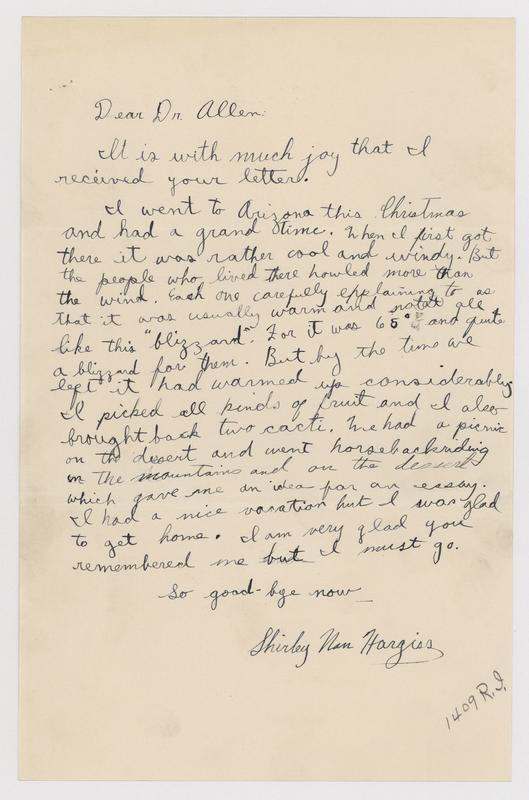 Dear Dr. Allen:
It is with much joy that I
received your letter.
I went to Arizona this Christmas
and had a grand time. When I first got
there it was rather cool and windy. But
the people who lived there howled more than
the wind. Each one carefully explaining to us
that it was usually warm and not at all
like this "blizzard". For it was 65° and quite
a blizzard for them. But by the time we
left it had warmed up considerably
I picked all kinds of fruit and I also
brought back two cacti. We had a picnic
on the desert and went horsebackriding
in the mountains and on the desert
which gave me an idea for an essay.
I had a nice vacation but I was glad
to get home. I am very glad you
remembered me but I must go.
So good-bye now
Shirley Nan Hargiss
1409 R.I.